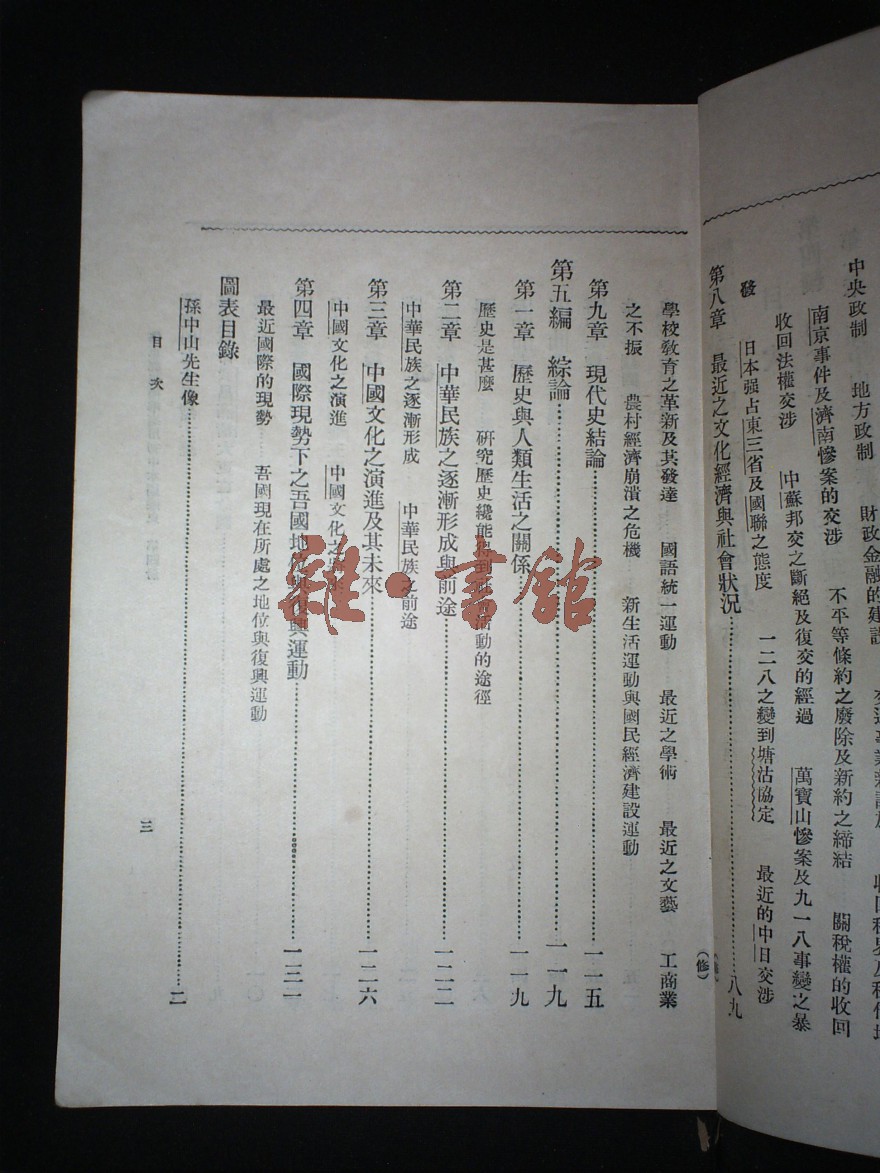 中央政制　地方政制　財政金融的建設
南京事件及濟南慘案的交涉　不平等條約之廢除及新約之締結　關稅權的收回
收回法權交涉　中蘇邦交之斷絕及復交的經過　萬寶山慘案及九一八事變之暴
發　日本强占東三省及國聯之態度　一二八之變到塘沽協定　最近的中日交涉
第八章　最近之文化經濟與社會狀況……八九
(修)
學校教育之革新及其發達　國語統一運動　最近之學術　最近之文藝　工商業
之不振　農村經濟崩潰之危機　新生活運動與國民經濟建設運動
第九章　現代史結論……一一五
第五編　綜論……一一九
第一章　歷史與人類生活之關係……一一九
歷史是甚麼　研究歷史纔能得到社會活動的途徑
第二章　中華民族之逐漸形成與前途……一二二
中華民族之逐漸形成　中華民族之前途
第三章　中國文化之演進及其未來……一二六
中國文化之演進　中國文化之
第四章　國際現勢下之吾國地位與復興運動……一三一
最近國際的現勢　吾國現在所處之地位與復興運動
圖表目錄
孫中山先生像……二
目次
三
雜·書館